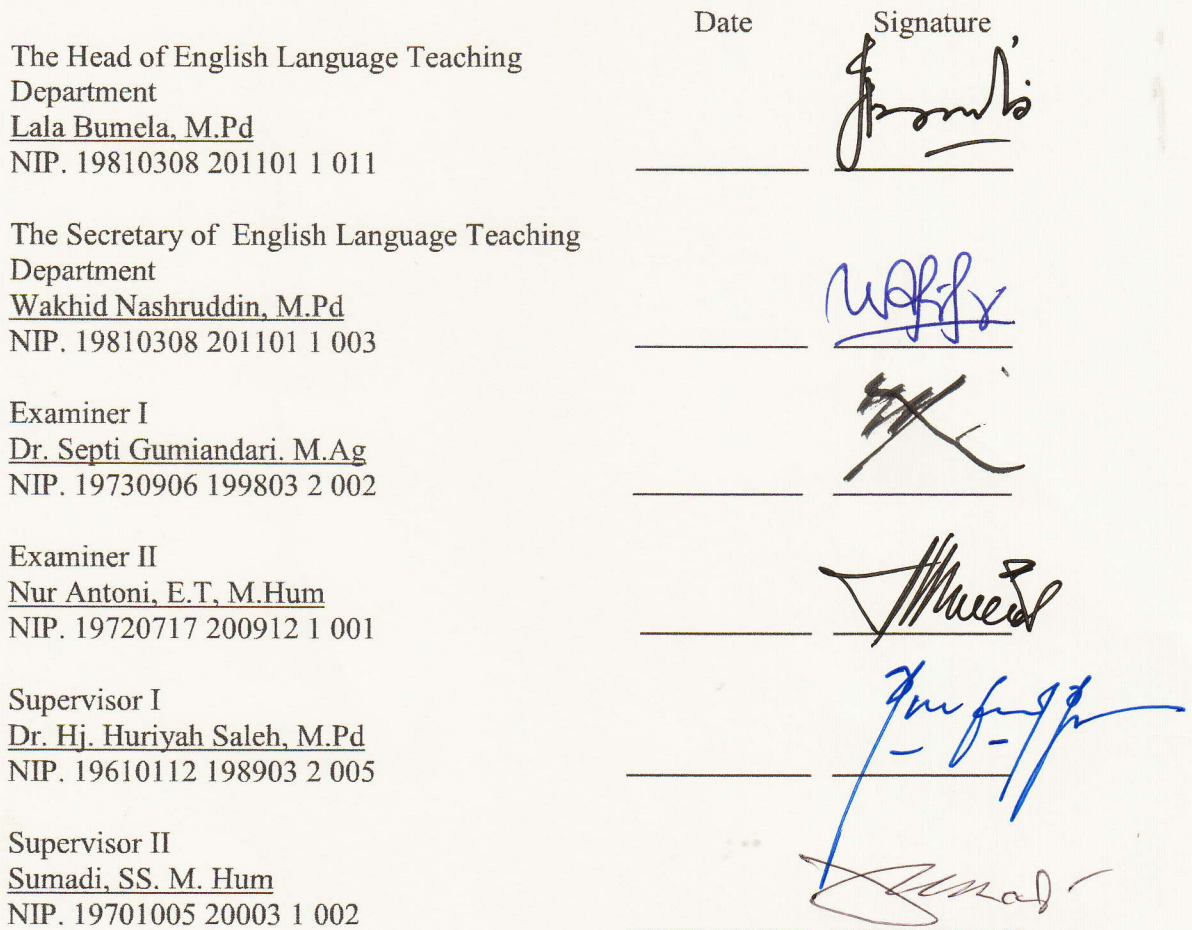 Date Signature
The Head of English Language Teaching
Department
Lala Bumela, M.Pd
NIP. 19810308 201101 1 011
The Secretary of English Language Teaching
Department
Wakhid Nashruddin, M.Pd
NIP. 19810308 201101 1 003
Examiner I
Dr. Septi Gumiandari. M.Ag
NIP. 19730906 199803 2 002
Examiner II
Nur Antoni, E.T, M.Hum
NIP. 19720717 200912 1 001
Supervisor I
Dr. Hj. Huriyah Saleh, M.Pd
NIP. 19610112 198903 2 005
Supervisor II
Sumadi, SS. M. Hum
NIP. 19701005 20003 1 002